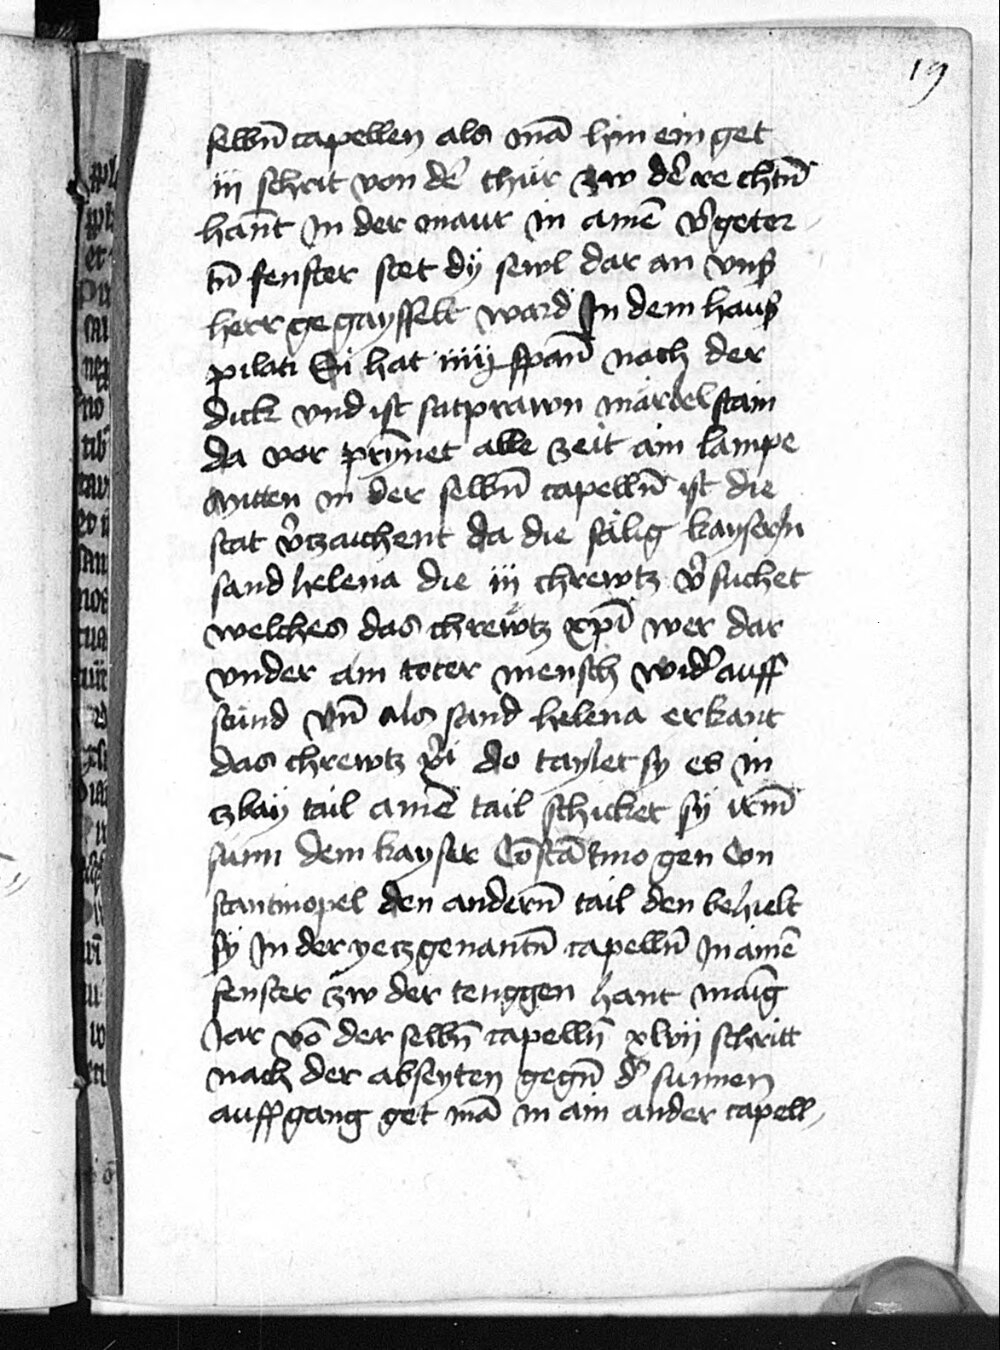 19
selbn̄ capellen als mā hin ein get
iij schrit von d'er thür zw d'er rechtn̄
hannt In der maur in ainē v'geter-
tn̄ fenster stet dÿ sewl dar an vnß
herr gegaysselt ward In dem hauß
pilati Si hat iiij span̄ nach der
dick vnd ist satprawn marbelstain
da vor prin̄et alle zeit ain lampe
Mitten in der selbn̄ capelln̄ ist die
stat v'tzaichent da die sälig kayseryn
sand helena die iij chrewtz v'suchet
welches das chrewtz xp̄i wer dar
vnder ain toter mensch wid' auff
stünd vn̄ als sand helena erkant
das chrewtz x̄pi do taylet sy es in
zbaÿ tail ainē tail schicket sÿ irm̄
sunn dem kayser Cōstātino gen Con
stantinopel den andern̄ tail den behielt
sÿ In der yetzgenantn̄ capelln̄ In ainē
fenster zw der tenggen hant manig
Jar vō der selbn̄ capelln̄ xlvij schritt
nach der abseyten gegn̄ d' sunnen
auffgang get mā in ain ander capell-